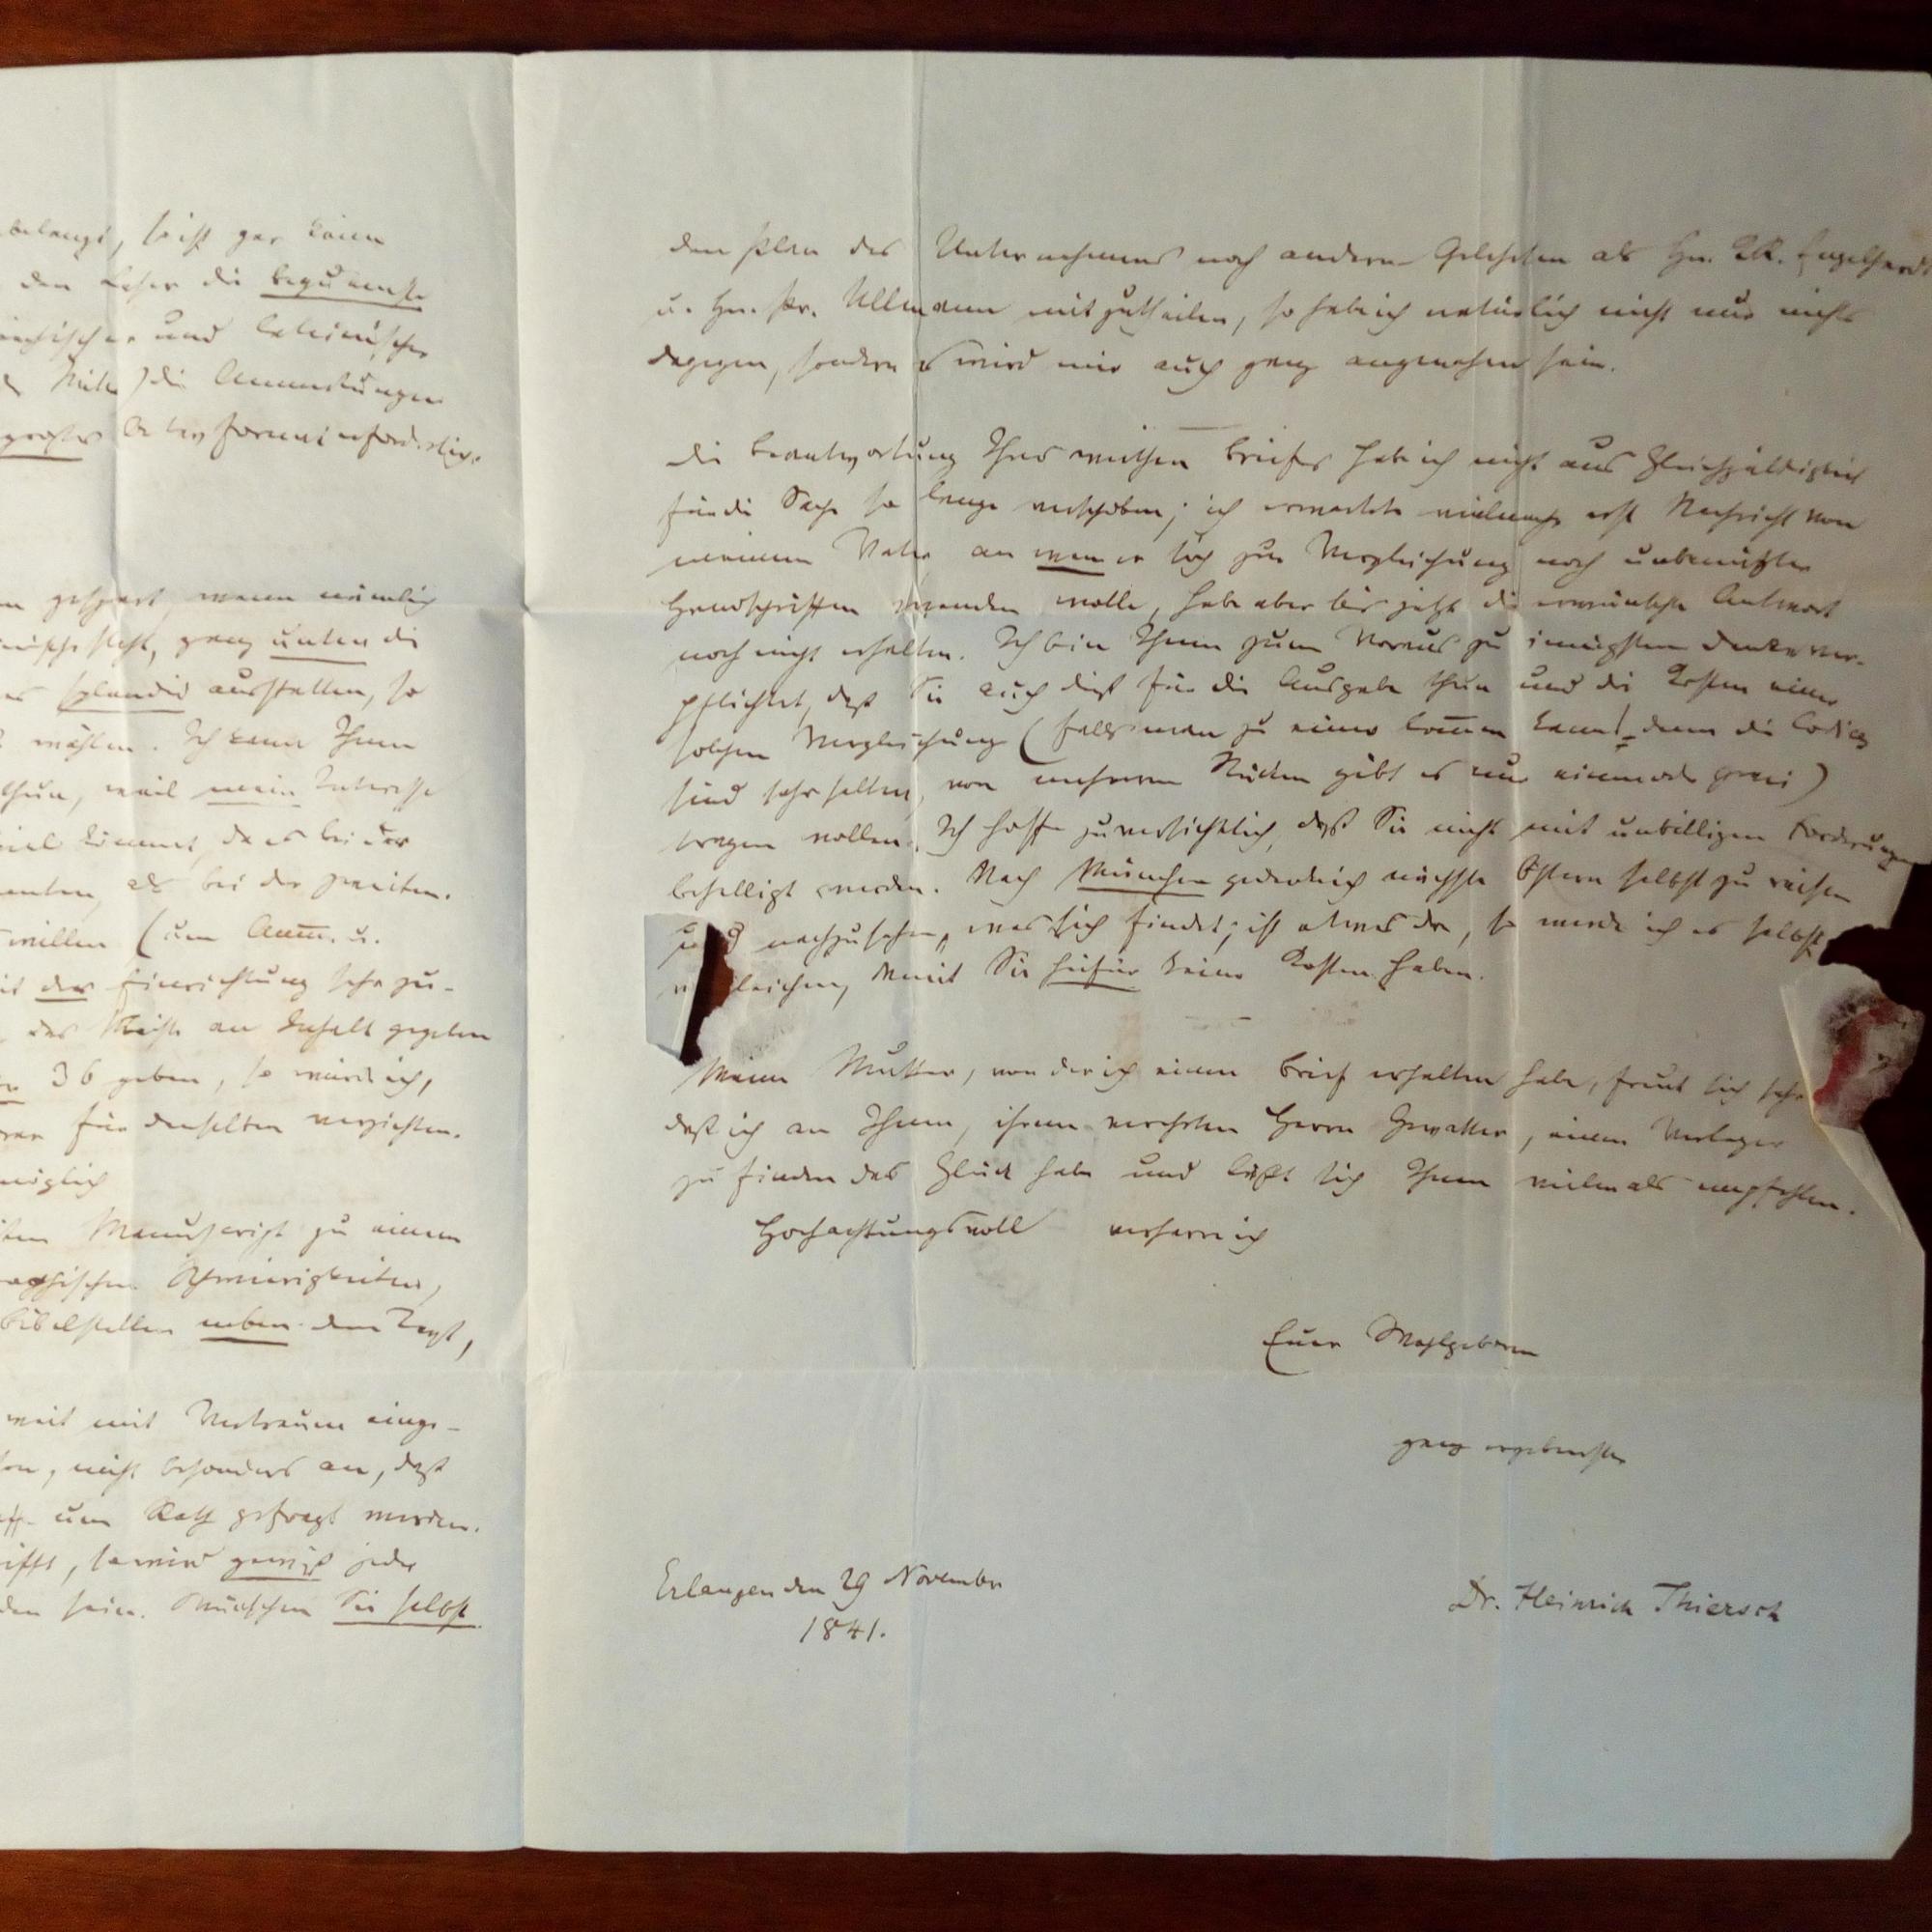 belangt, so ist gar kein
den Leser die bequemste
und lateinischer
Mitte) die Anmerkungen
grosses Octavformat erforderlich.
gespart wenn nämlich
steht, ganz unten die
splendid ausstatten, so
wählen. Ich kann Ihnen
thun, weil mein Interesse
viel kömmt, da es bei der
als bei der zweiten.
willen (um Anm. u.
mit der Einrichtung sehr zu-
das Meiste an Inhalt gegeben
36 geben, so würde ich,
für denselben verzichten.
möglich
Manuscript zu einem
Schwierigkeiten,
Bibelstellen neben dem Text,
weit mit Vertrauen einge-
nicht besonders an, daß
um Rath gefragt werden.
so wird gewiß jeder
sein. Wünschen Sie selbst
den Plan des Unternehmens noch andern Gelehrten als Hn. KR. Engelhardt
u. Hn. Pr. Ullmann mitzutheilen, so habe ich natürlich nicht nur nichts
dagegen, sondern es wird mir auch ganz angenehm sein.
Die Beantwortung Ihres werthen Briefes habe ich nicht aus Gleichgültigkeit
für die Sache so lange verschoben; ich erwartete vielmehr erst Nachricht von
meinem Vater an wen er sich zur Vergleichung noch unbenützter
Handschriften wenden wolle, habe aber bis jetzt die erwünschte Antwort
noch nicht erhalten. Ich bin Ihnen zum Voraus zu innigstem Danke ver-
pflichtet, daß Sie auch dieß für die Ausgabe thun und die Kosten einer
solchen Vergleichung (falls man zu einer komen kann, denn die Codices
sind sehr selten, von mehreren Stücken gibt es nur einen oder zwei)
tragen wollen. Ich hoffe zuversichtlich, daß Sie nicht mit unbilligen Forderungen
behelligt werden. Nach München gedenke ich nächste Ostern selbst zu reisen
und nachzusehen, was sich findet; ist etwas da, so werde ich es selbst
vergleichen, womit Sie hiefür keine Kosten haben.
Meine Mutter, von der ich einen Brief erhalten habe, freut sich sehr
daß ich an Ihnen, ihrem verehrten Herrn Gevatter, einen Verleger
zu finden das Glück habe und läßt sich Ihnen vielmals empfehlen.
Hochachtungsvoll verharre ich
Euer Wohlgeboren
ganz ergebenster
Erlangen den 29 November
1841.
Dr. Heinrich Thiersch